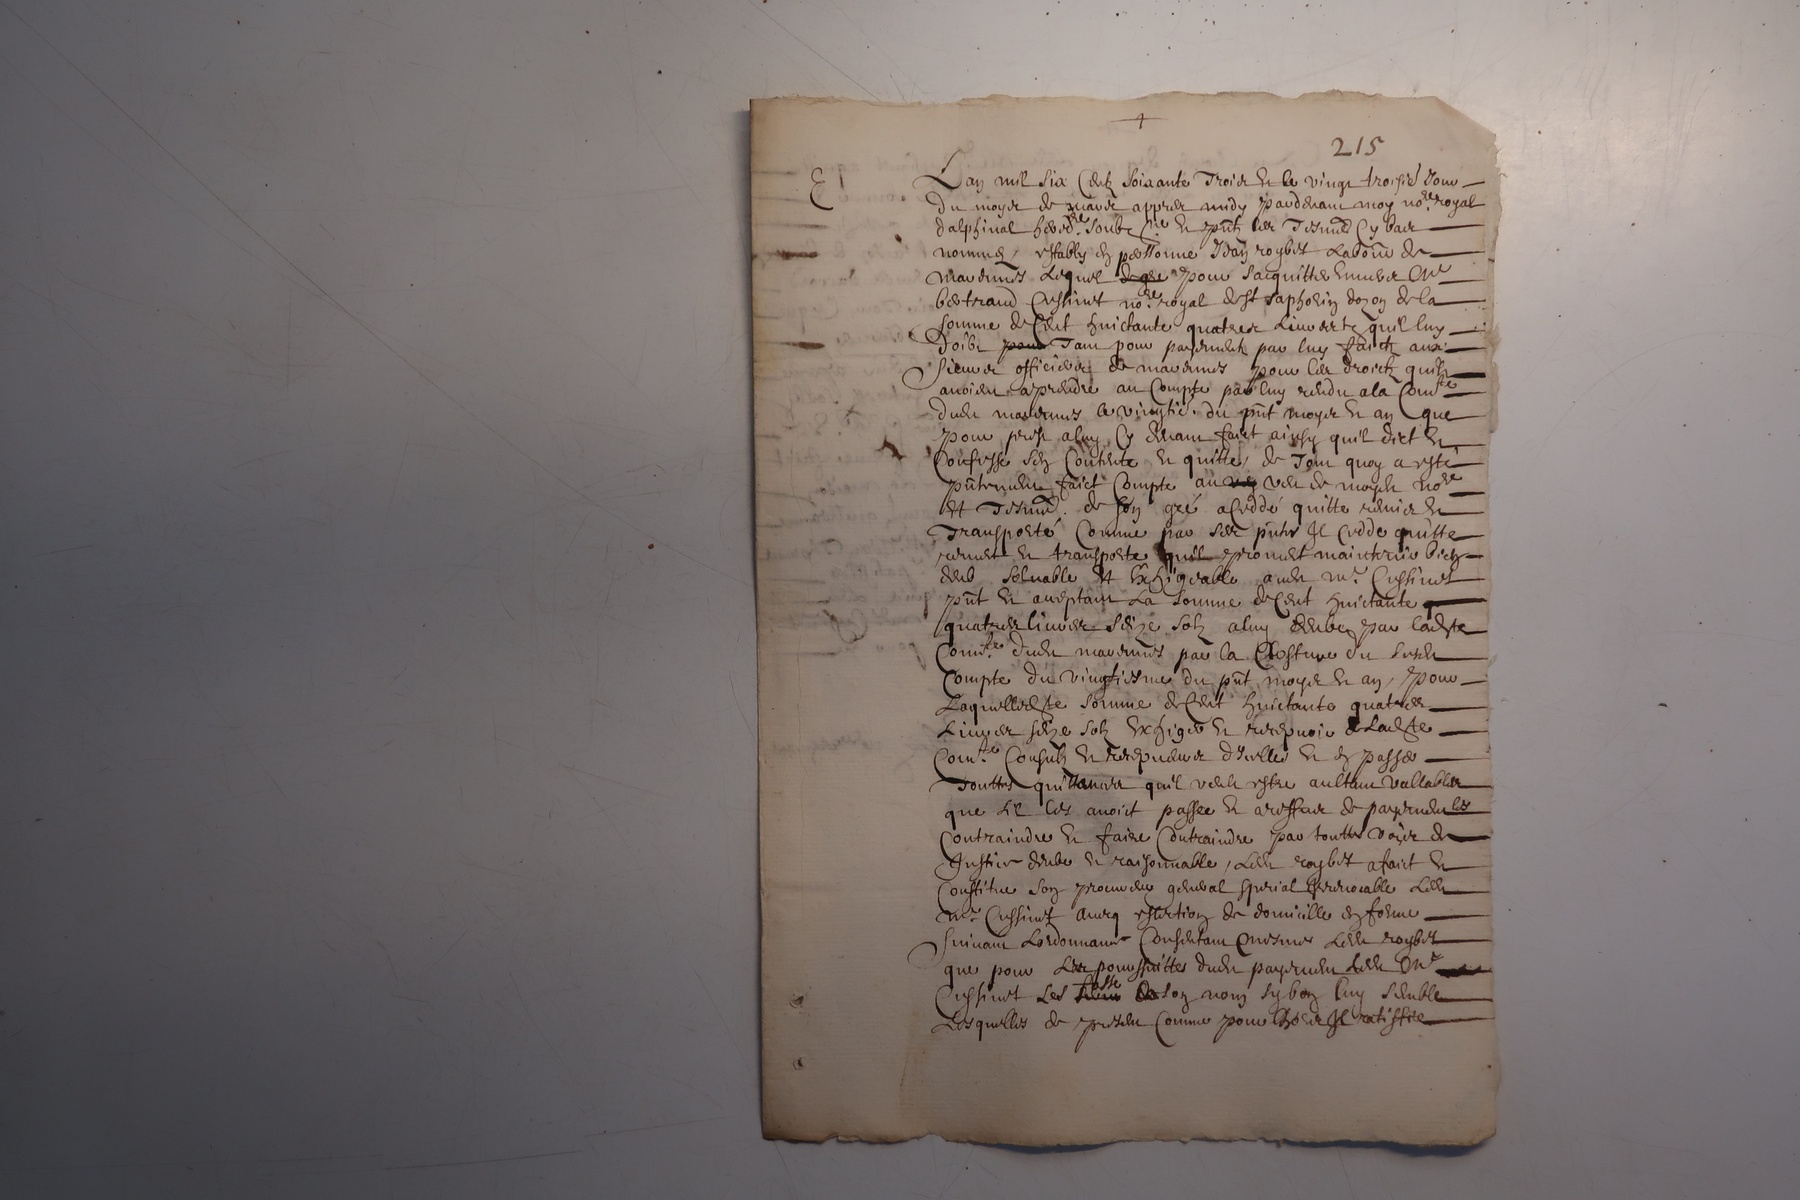 215
Lan mil six Centz soixante Trois et le vingt troisie Jour
du moys de mars appres midy pardevant moy no.re royal
dalphinal hered.re soubz.ne et pntz les Tesmz Cy bas
nommes, estably en personne Jean roybet Laboure de
mavennes Lequel pour sacquitter envers Me
bertrand Cussinet no.re royal de st saphorin dozon de la
somme de Cent huictante quatres Livres tz quil luy
doibt Tant pour payement par luy faict aux
sieurs officiers de mavennes pour les droictz quilz
avoient aprendre au Compte par luy rendu a la Com.te
dudt mavennes le vingtie. du pnt moys et an que
pour prest a luy Cy devant faict ainsy quil dict et
Confesse sen Contente et quitte, de Tout quoy a esté
pntement faict Compte au veu de moydt no.re
et Tesmz. de son gré a Ceddé quitte remis et
Transporté Comme par ses pntes Il Cedde quitte
remet et transporte quil promet maintenir bien
deub solvable et Exhigeable audt Me. Cussinet
pnt et aceptant La somme de Cent huictante
quatres livres seize solz a luy deubez par ladte
Com.te dudt mavennes par la Closture du susdt
Compte du vingtiesme du pnt moys et an, Pour
Laquelledte somme de Cent huictante quatres
Livres seize solz Exhiger et recepvoir de Ladte
Com.te Consulz et recepveurs dicelles et en passer
Touttes quittances quil veult estre aultant vallables
que sil les avoict passee et a reffeus de payement les
Contraindre et faire Contraindre par touttes voyes de
Justice deube et raisonnable, Ledt roybet a faict et
Constitue son procureur general special Irrevocable Ledt
Me. Cussinet avecq eslection de domicille en forme
suivant Lordonnance Consentant Mesmes Ledt roybet
que pour Les poursuittes dudt payement Ledt Me
Cussinet Les fasse son nom sy bon luy semble
Lesquelles de present Comme pour lhors Il ratiffie